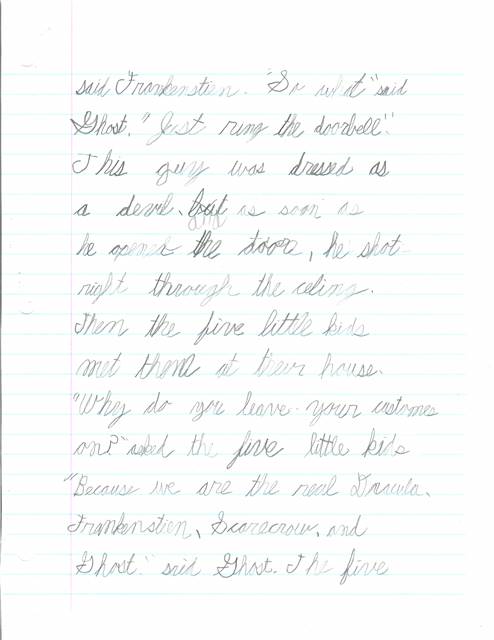 said Frankenstien. "So what" said
Ghost. "Just ring the doorbell".
This guy was dressed as
a devil. but as soon as
he opened the doore, he shot
right through the celing.
Then the five little kids
met them at their house.
"Why do you leave your customes
on?" asked the five little kids
"Because we are the real Dracula,
Frankenstien, Scarecrow, and
Ghost." said Ghost. The five